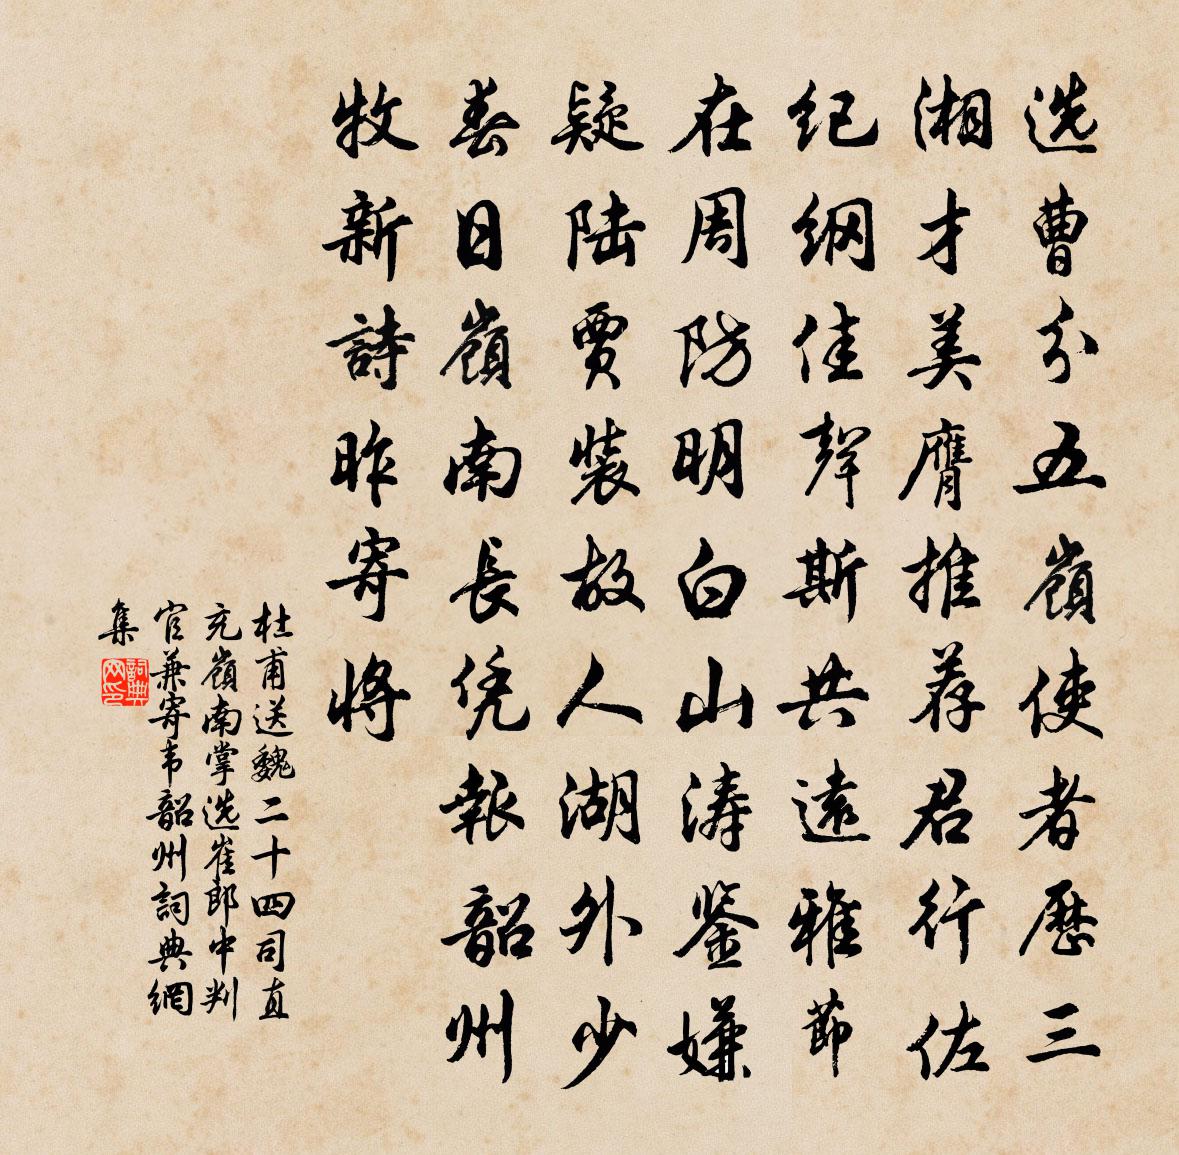 选曹分五嶺使者歷三
湘才美膺推荐君行佐
纪纲佳聲斯共遠雅節
在周防明白山涛鉴嫌
疑陆贾装故人湖外少
春日嶺南長凭報韶州
牧新詩昨寄将
杜甫送魏二十四司直
充嶺南掌选崔郎中判
官兼寄韦韶州詞典網
集
詞典
网印